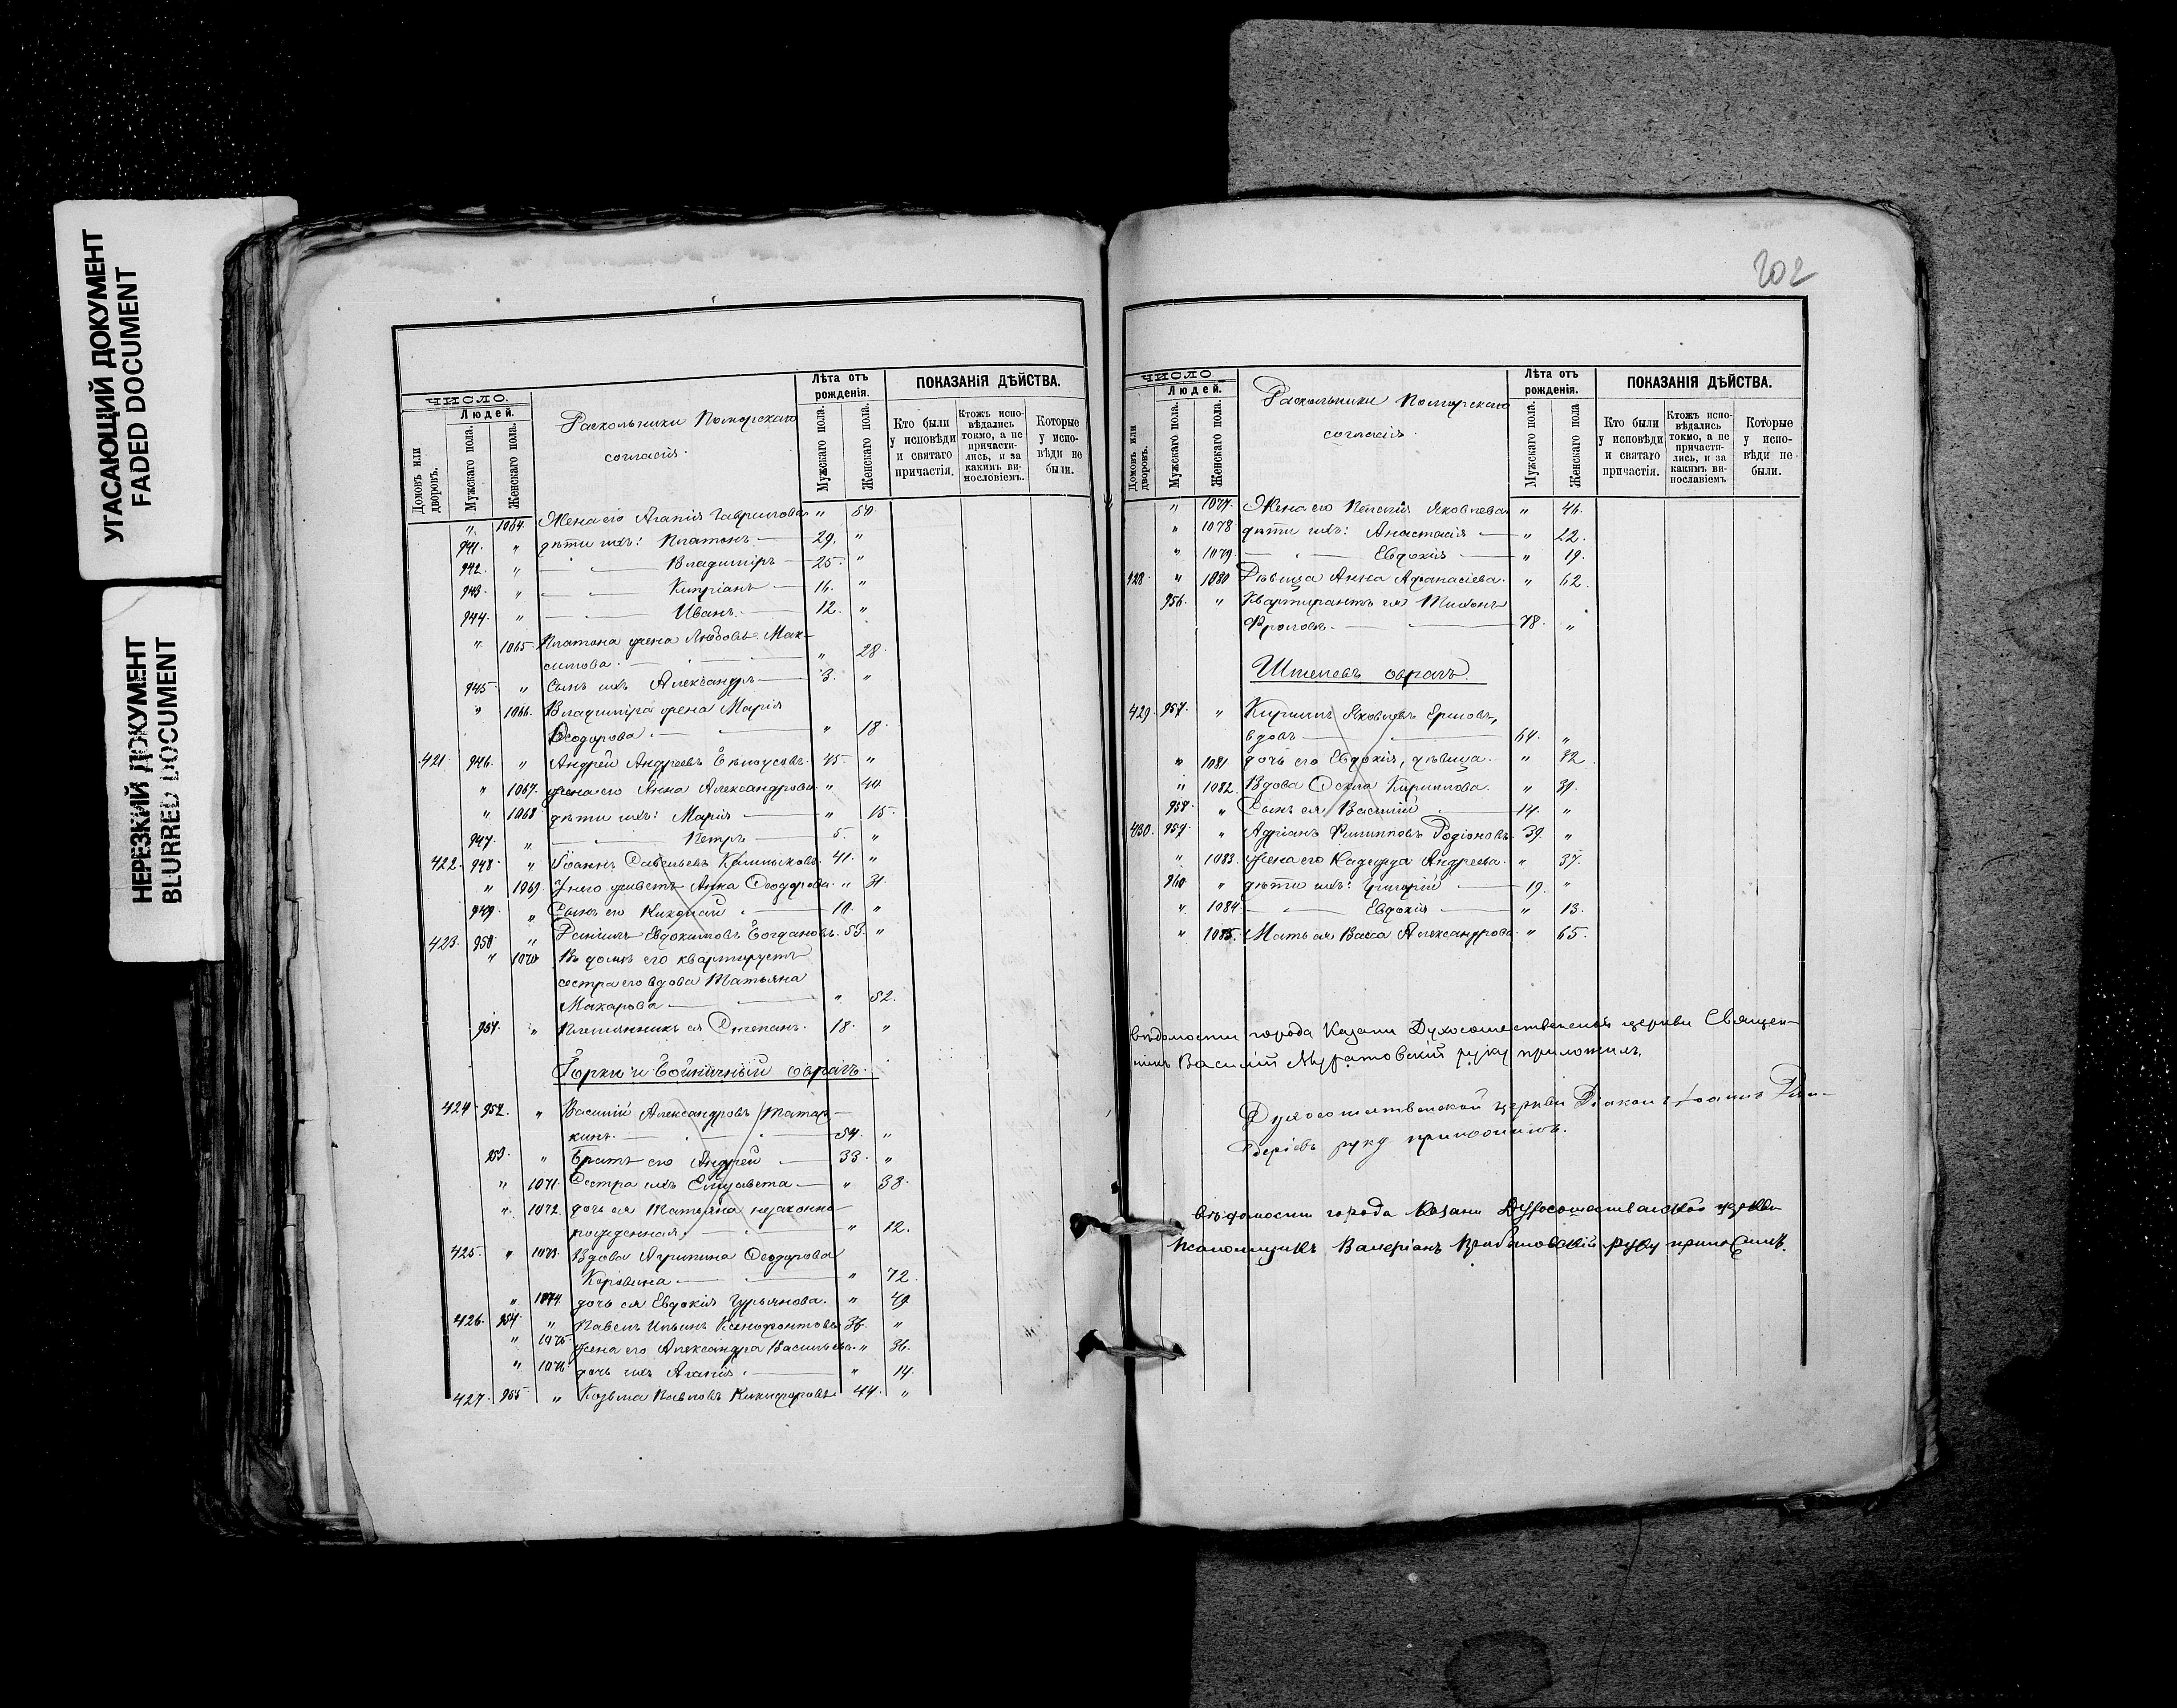 УГАСАЮЩИЙ ДОКУМЕНТ
FADED DOCUMENT
НЕРЕЗКИЙ ДОКУМЕНТ
BLURRED DOCUMENT
ЧИСЛО.
Людей.
Домовъ или дворовъ.
Мужскаго пола.
Женскаго пола.
Раскольники Поморскаго
согласія.
Лѣта отъ рожденія.
Мужскаго пола.
Женскаго пола.
ПОКАЗАНІЯ ДѢЙСТВА.
Кто были у исповѣди и святаго причастія.
Ктожъ исповѣдались токмо, а не причастились, и за какимъ винословіемъ.
Которые у исповѣди не были.
" 1064. Жена его Агапія Гаврилова " 50.
941. " дѣти ихъ: Платонъ 29. "
942. " Владиміръ 25. "
943. " Кипріанъ 14. "
944. " Иванъ. 12. "
" 1065. Платона жена Любовь Мак-
симова. " 28.
945. " Сынъ ихъ Александръ 3. "
" 1066. Владиміра жена Марія
Ѳеодорова. " 18.
421. 946. " Андрей Андреевъ Бѣлоусовъ. 45. "
" 1067. жена его Анна Александрова. " 44.
" 1068 дѣти ихъ: Марія " 15.
947. " Петръ 5. "
422. 948. " Іоаннъ Савельевъ 41. "
" 1069. У него живетъ Анна Ѳеодорова. " 31.
949. " Сынъ его Николай 10. "
423. 950. " Даніилъ Евдокимовъ Богдановъ. 53. "
" 1070 Въ домѣ его квартируетъ
сестра его вдова Татьяна
Макарова " 52.
951. " Племянникъ ея Степанъ. 18. "
Горки и Войничный оврагъ.
424. 952. " Василій Александровъ Татар-
кинъ. 54. "
953. " Братъ его Андрей 33. "
" 1071. Сестра ихъ Елизавета " 38.
" 1072. дочь ея Татьяна незаконно-
рожденная " 12.
425. " 1073. Вдова Агрипина Ѳеодорова
Коровина " 72.
" 1074 дочь ея Евдокія Гурьянова. " 49
426. 954. " Павелъ Ильинъ Ксенофонтовъ 36. "
" 1075. жена его Александра Васильева. " 36.
" 1076 дочь ихъ Агапія. " 14.
427. 955 " Козьма Павловъ Никифоровъ 44. "
202
ЧИСЛО
Людей.
Домовъ или дворовъ.
Мужскаго пола.
Женскаго пола.
Раскольники Поморскаго
согласія.
Лѣта отъ рожденія.
Мужскаго пола.
Женскаго пола
ПОКАЗАНІЯ ДѢЙСТВА.
Кто были у исповѣди и святаго причастія.
Ктожъ исповѣдались токмо, а не причастились, и за какимъ винословіемъ
Которые у исповѣди не были.
" 1077. Жена его Пелагія Яковлева " 46.
" 1078 дѣти ихъ: Анастасія " 22.
" 1079. Евдокія " 19.
428. " 1080 Дѣвица Анна Аѳанасіева. " 62.
956. " Квартирантъ ея Тихонъ
Фроловъ. 78. "
Штелевъ оврагъ.
429. 957. " Кириллъ Яковлевъ Ершовъ,
вдовъ 64. "
" 1081. дочь его Евдокія, дѣвица. " 32
" 1082. Вдова Ѳекла Кириллова. " 39.
958. " Сынъ ея Василій 14. "
430. 959. " Адріанъ Филипповъ Родіоновъ. 39. "
" 1083. жена его Надежда Андреева. " 37.
960. " дѣти ихъ: Григорій 19. "
" 1084. Евдокія " 13.
" 1085. Мать ея Васса Александрова. " 65.
вѣдомости города Казани Духосошественской церкви Священ-
никъ Василій руку приложилъ.
Духосошественской церкви Діаконъ Іоаннъ
руку приложилъ.
вѣдомости города Казани Духосошественской церкви
Псаломщикъ Валеріанъ руку приложилъ.